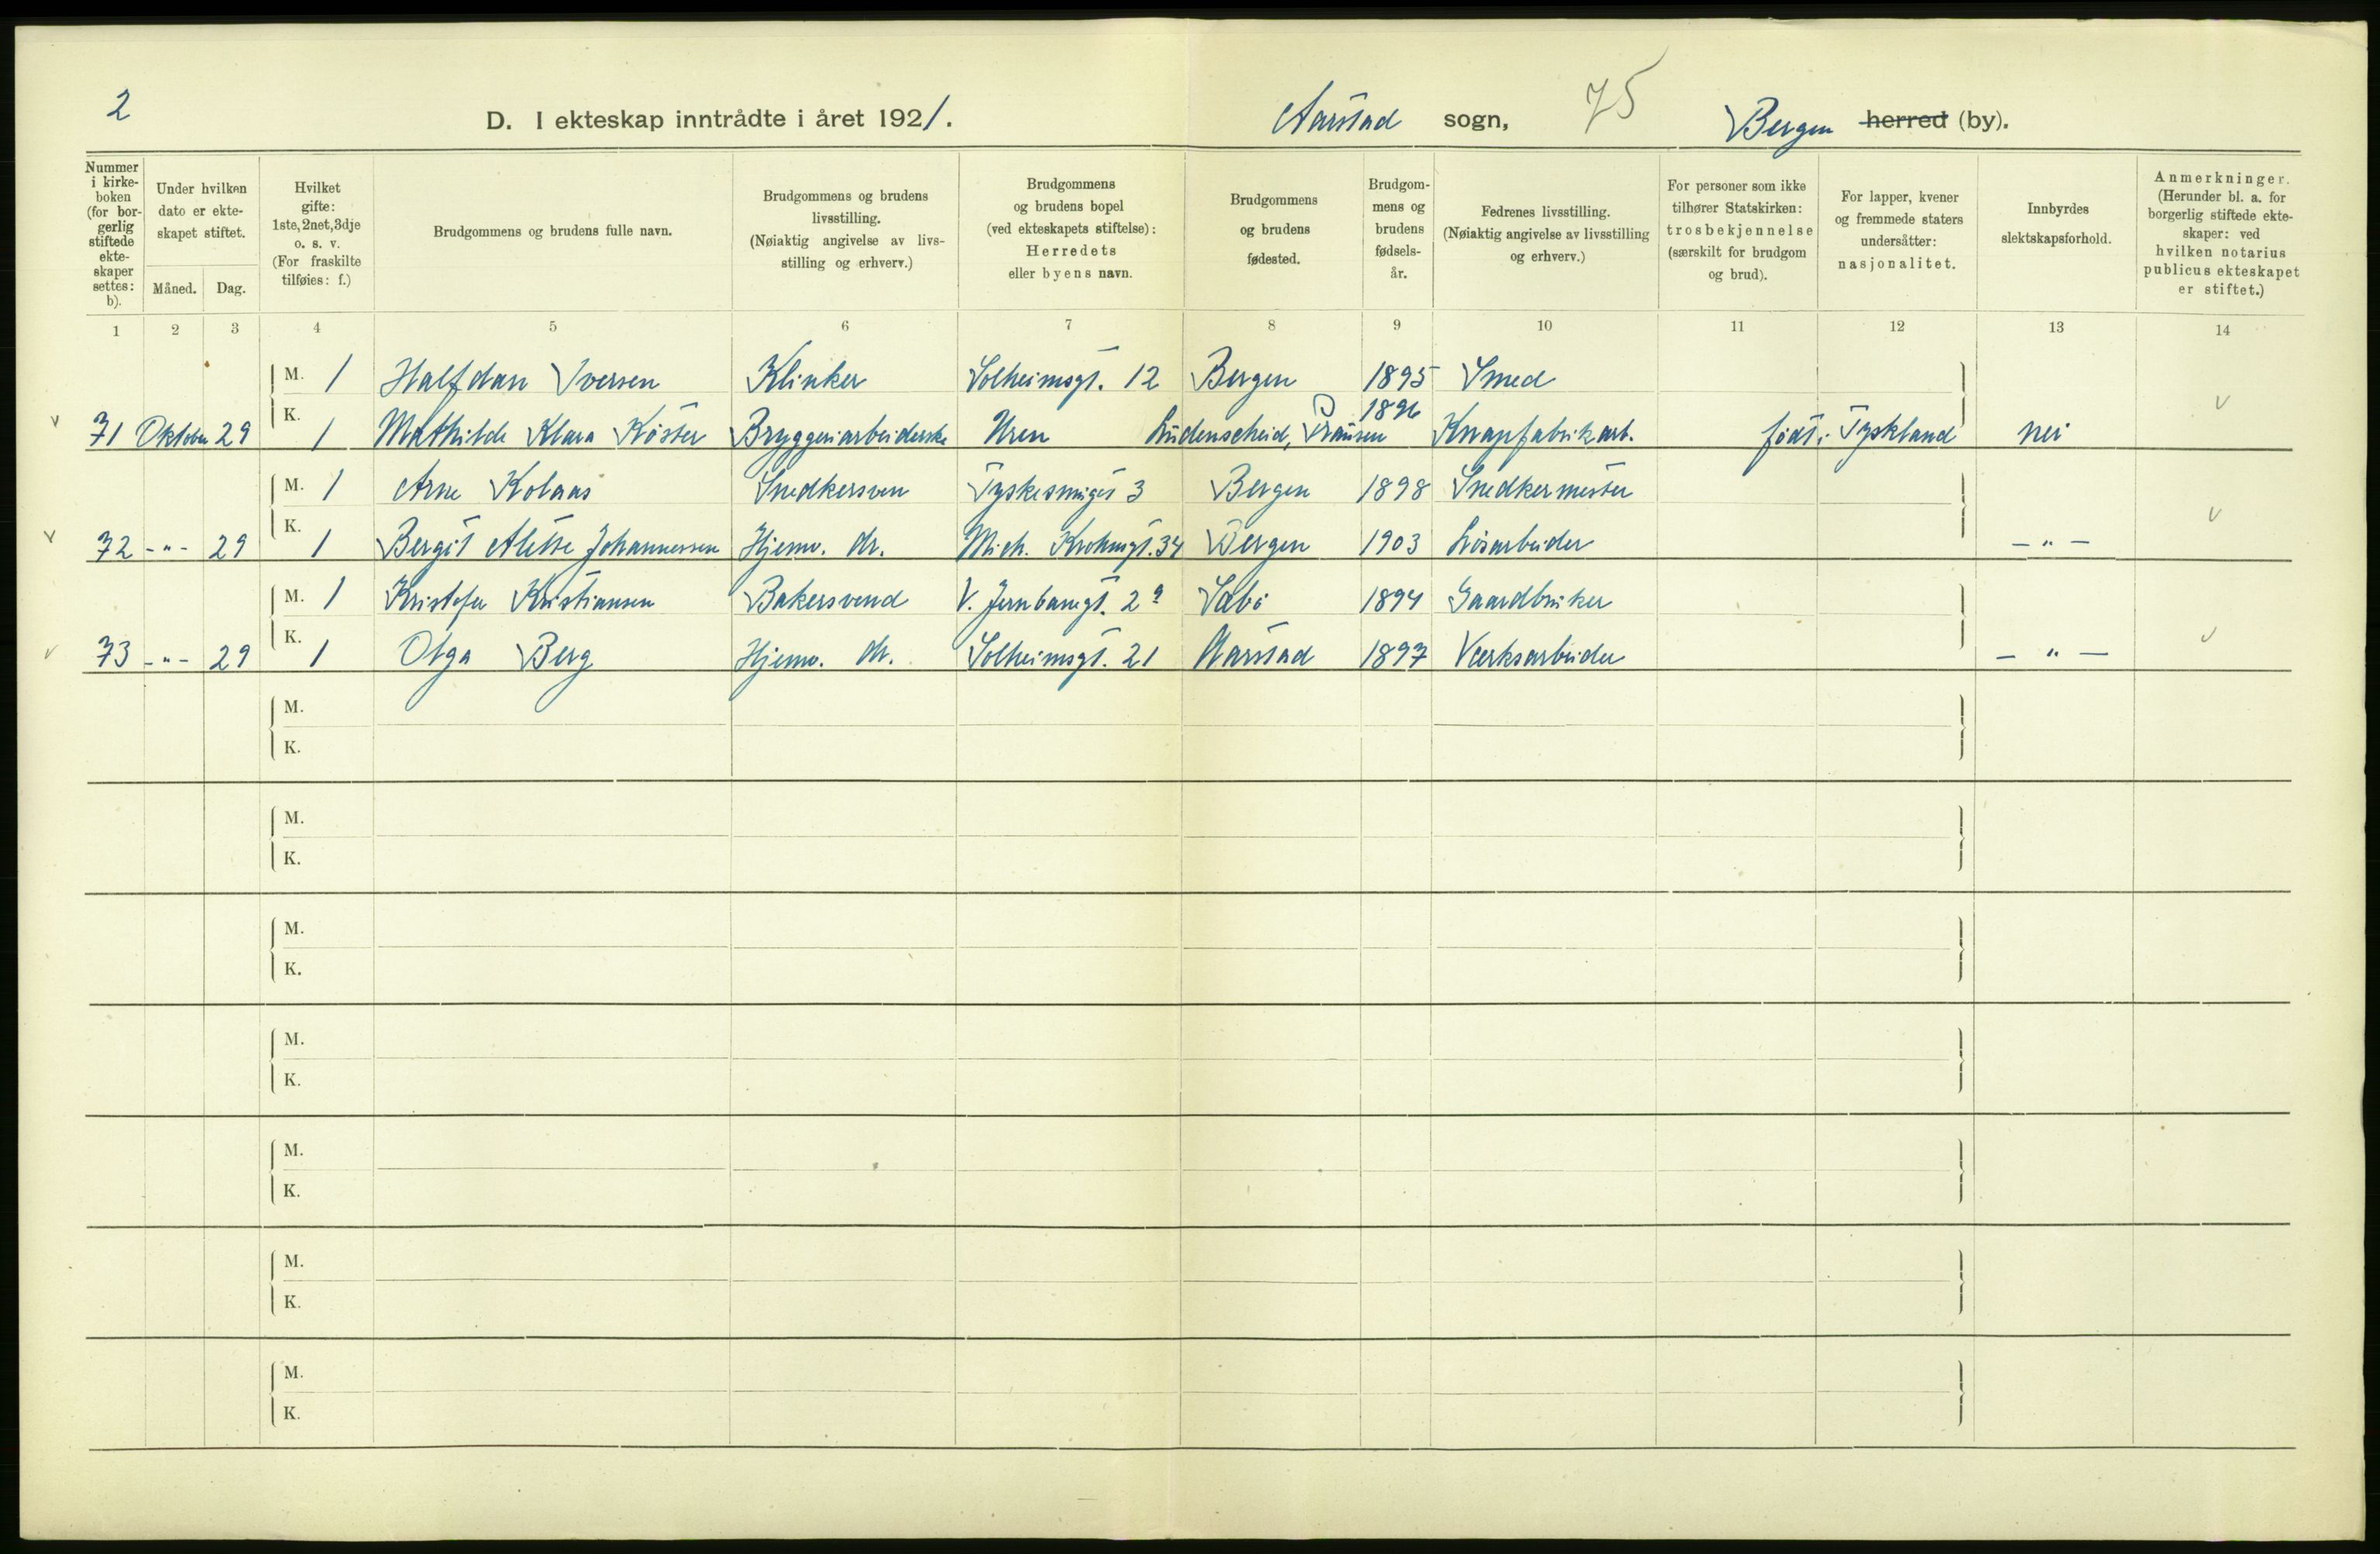 2
D. I ekteskap inntrådte i året 1921.
Aarstad sogn, 75 Bergen herred (by).
Nummer i kirke-boken (for bor-gerlig stiftede ekte-skaper settes: b).
Under hvilken dato er ekte-skapet stiftet.
Måned. Dag.
Hvilket gifte: 1ste, 2net, 3dje o. s. v. (For fraskilte tilføies: f.)
Brudgommens og brudens fulle navn.
Brudgommens og brudens livsstilling. (Nøiaktig angivelse av livs-stilling og erhverv.)
Brudgommens og brudens bopel (ved ekteskapets stiftelse): Herredets eller byens navn.
Brudgommens og brudens fødested.
Brudgom-mens og brudens fødsels-år.
Fedrenes livsstilling. (Nøiaktig angivelse av livsstilling og erhverv.)
For personer som ikke tilhører Statskirken: trosbekjennelse (særskilt for brudgom og brud).
For lapper, kvener og fremmede staters undersåtter: nasjonalitet.
Innbyrdes slektskapsforhold.
Anmerkninger. (Herunder bl. a. for borgerlig stiftede ekte-skaper: ved hvilken notarius publicus ekteskapet er stiftet.)
1 2 3 4 5 6 7 8 9 10 11 12 13 14
M. 1 Halfdan Iversen Klinker Solheimsgt. 12 Bergen 1895 Smed
71 Oktober 29 K. 1 Mathilde Klara Köster Bryggeriarbeiderske Uren Lüdenscheid, Praüsen 1896 Knapfabrikarb. født i Tyskland nei
M. 1 Arne Kolaas Snedkersven Tyskesmuget 3 Bergen 1898 Snedkermester
72 -"- 29 K. 1 Bergit Alette Johannessen Hjemv. dt. Mich. Krohnsgt. 34 Bergen 1903 Løsarbeider - " -
M. 1 Kristofer Kristiansen Bakersvend V. Jernbanegt. 2a Sæbø 1894 Gaardbruker
73 -"- 29 K. 1 Olga Berg Hjemv. dt. Solheimsgt. 21 Aarstad 1897 Værksarbeider - " -
M.
K.
M.
K.
M.
K.
M.
K.
M.
K.
M.
K.
M.
K.